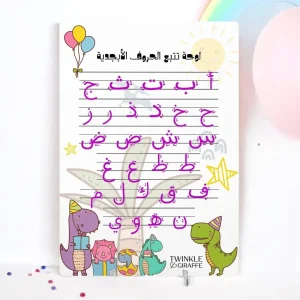 لوحة تتبع الحروف الأبجدية
أ ب ت ث ج
ح خ د ذ ر ز
س ش ص ض
ط ظ ع غ
ف ق ك ل م
ن ه و ي
TWINKLE
GIRAFFE